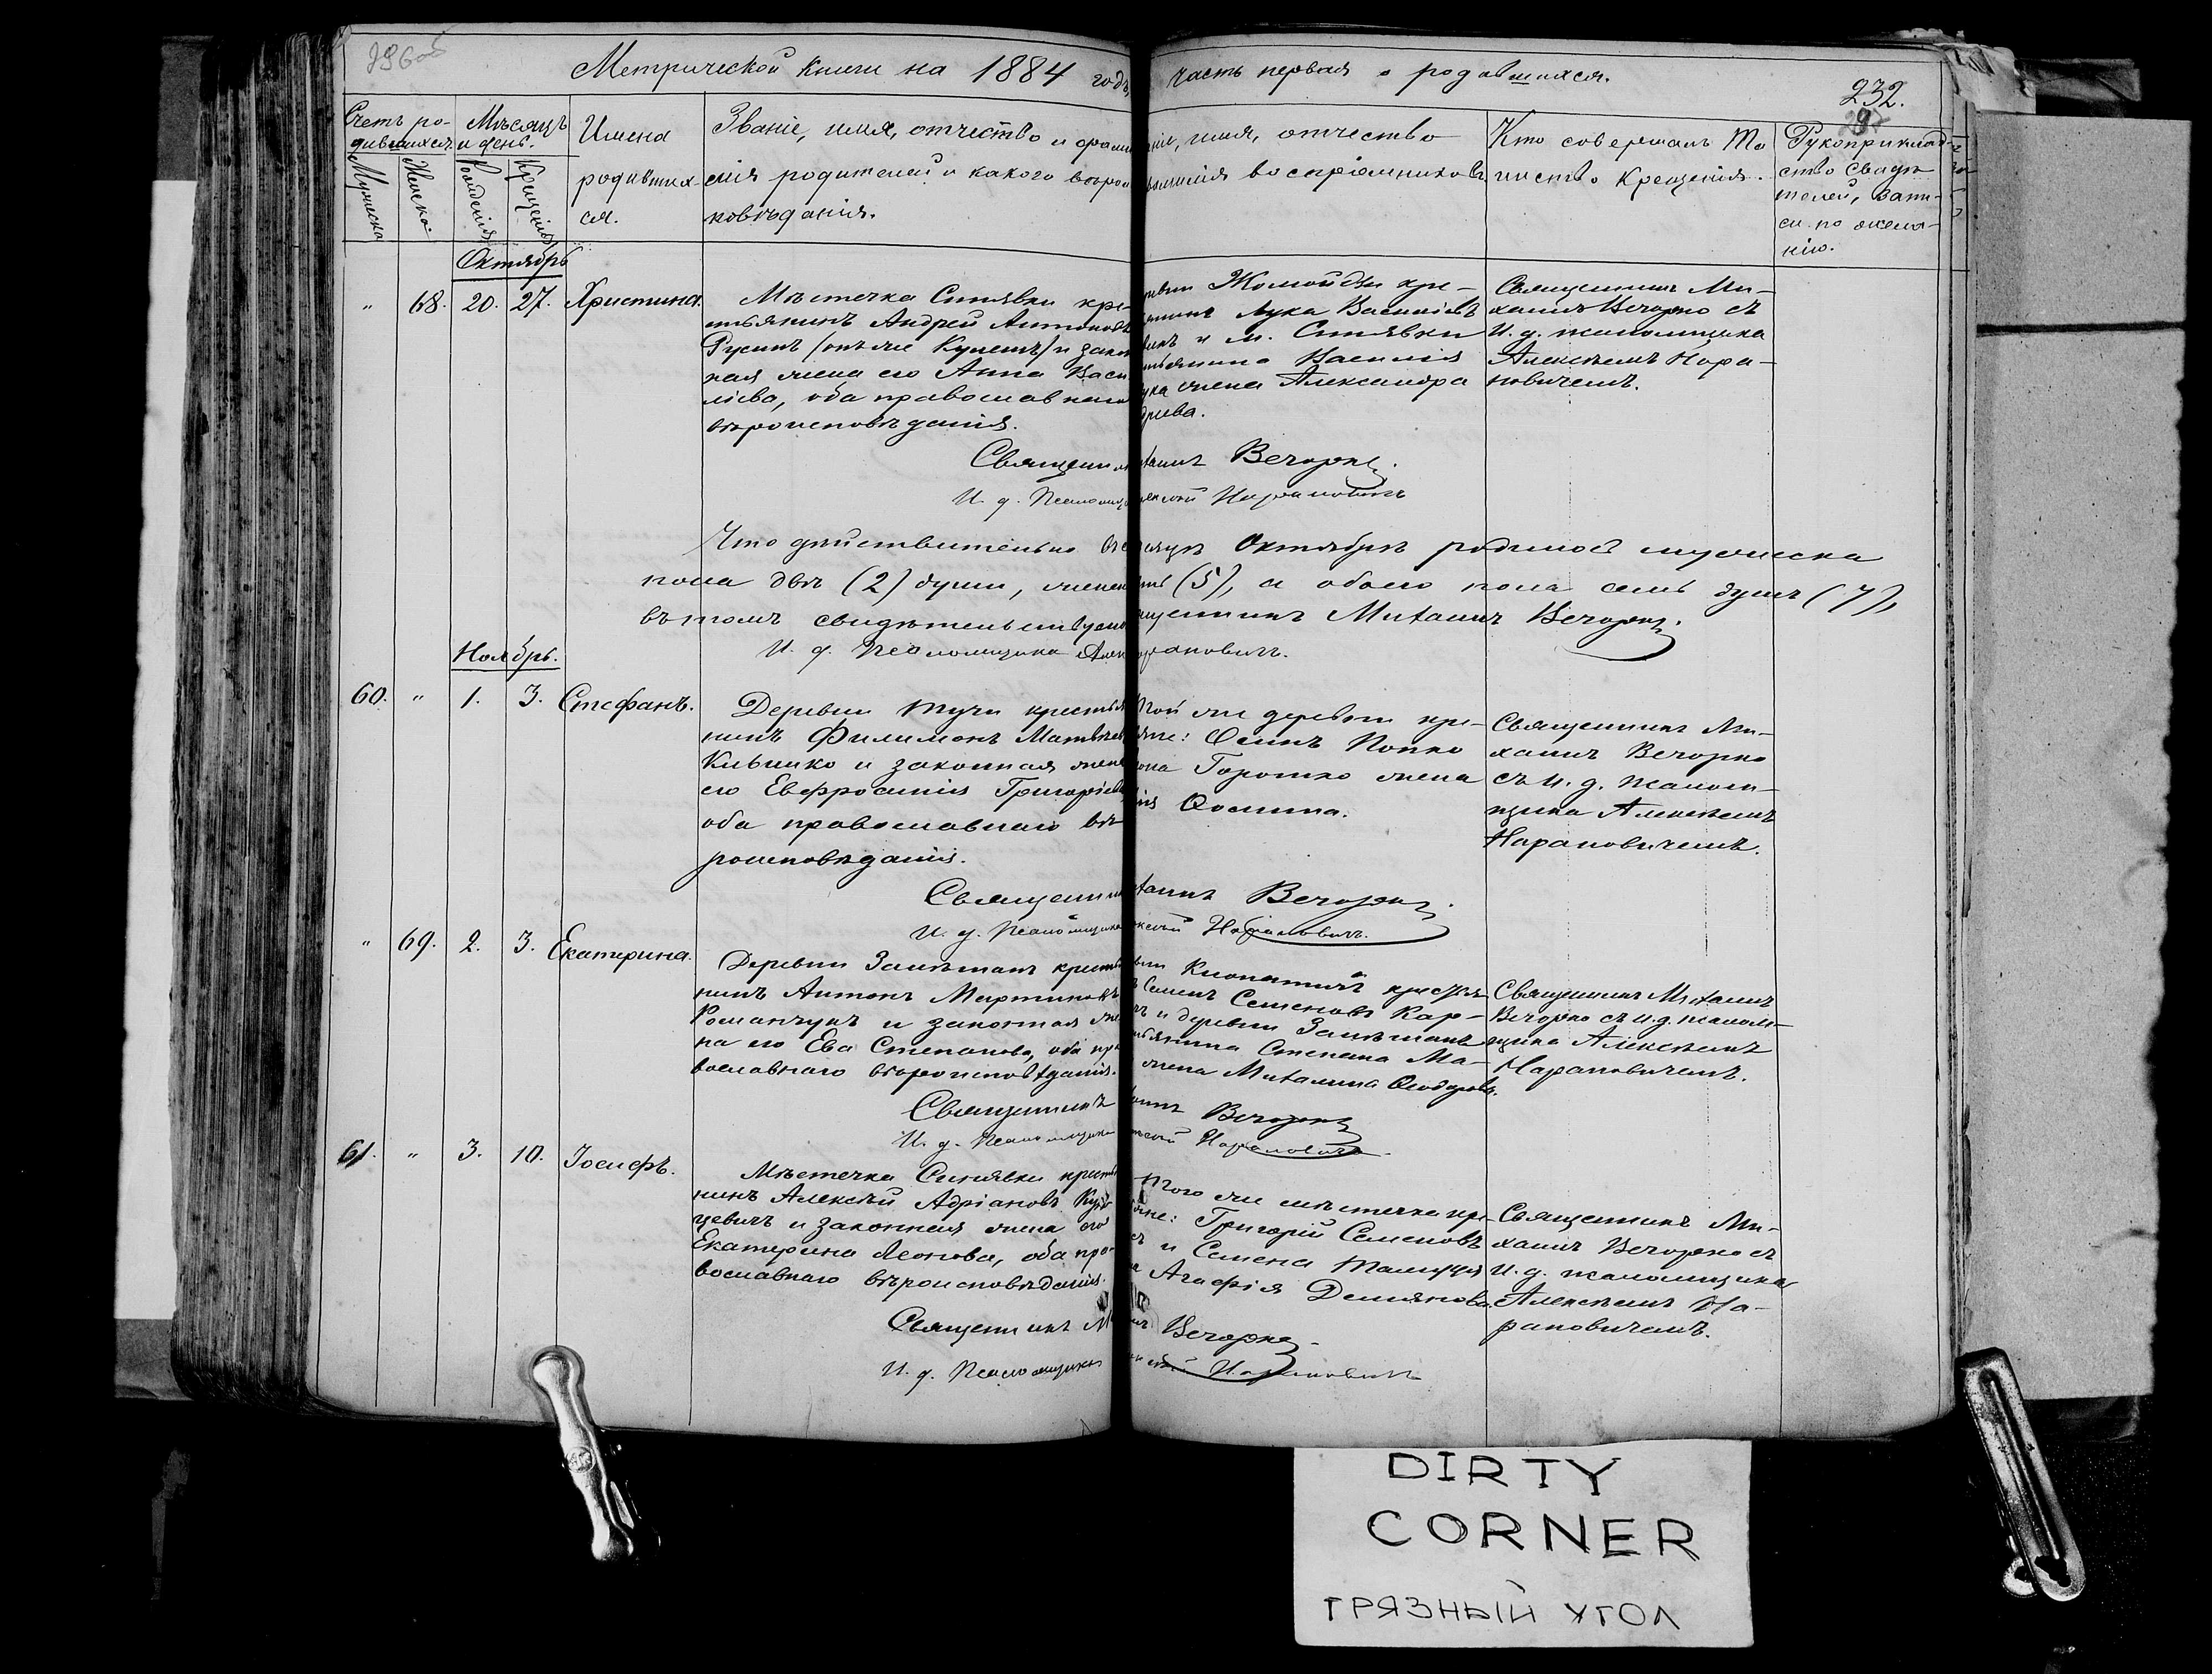 Метрической книги на 1884 годъ, часть первая о родившихся.
232.
Счетъ ро-
дившихся.
Мужеска
Женска
Мѣсяцъ
и день.
Рожденія
Крещенія
Имена
родивших-
ся.
Званіе, имя, отчество и фами
лія родителей и какого вѣроис
повѣданія.
ніе, имя, отчество
милія воспріемниковъ
Кто совершалъ Та
инство Крещенія.
Рукоприклад-
ство свидѣ
телей, запи-
си по жела-
нію.
Октябрь
" 68. 20. 27. Христина.
Мѣстечка Синявки кре-
стьянинъ Андрей Антоновъ
Русинъ (онъ же Кулешъ) и закон
ная жена его Анна Васи
ліева, оба православнаго
вѣроисповѣданія.
Жомойдзи кре-
Лука Васильевъ
и м. Синявки
Василія
жена Александра
Священникъ Ми-
хаилъ Вечорко съ
И. д. псаломщика
Алексѣемъ Нара-
новичемъ.
Священникъ Михаилъ Вечорко
И. д. Псаломщика Алексѣй Нарановичъ
Что дѣйствительно въ мѣсяцѣ Октябрѣ родилось мужеска
пола двѣ (2) души, женска пять (5), а обоего пола семь душъ (7),
въ томъ свидѣтельствуемъ Священникъ Михаилъ Вечорко
И. д. Псаломщика Алексѣй Нарановичъ.
Ноябрь.
60. " 1. 3. Стефанъ.
Деревни Тучи крестья
нинъ Филимонъ Матвѣевъ
Клышко и законная жена
его Евфросинія Григорьева
оба православнаго вѣ
роисповѣданія.
Той же деревни кре-
Осипъ Попко
Горошко жена
Ѳомина.
Священникъ Ми-
хаилъ Вечорко
съ И. д. псалом-
щика Алексѣемъ
Нарановичемъ.
Священникъ Михаилъ Вечорко
И. д. Псаломщика Алексѣй Нарановичъ.
" 69. 2. 3. Екатерина.
Деревни Заельтанъ кресть
нинъ Антонъ Мартиновъ
Романчукъ и законная же
на его Ева Степанова, оба пра
вославнаго вѣроисповѣданія.
крестья
Семенъ Семеновъ Кар-
и деревни
Степана Ма-
жена Михалина Ѳеодорова.
Священникъ Михаилъ
Вечорко съ И. д. псалом-
щика Алексѣемъ
Нарановичемъ.
Священникъ Михаилъ Вечорко
И. д. Псаломщика Алексѣй Нарановичъ
61. " 3. 10. Іосифъ.
Мѣстечка Синявки кресть
нинъ Алексѣй Адріановъ
цевичъ и законная жена его
Екатерина Леонова, оба пра-
вославнаго вѣроисповѣданія.
Того же мѣстечка кре-
Григорій Семеновъ
и Семена
Агафія Демянова
Священникъ Ми-
хаилъ Вечорко съ
И. д. псаломщика
Алексѣемъ На-
рановичемъ.
Священникъ Михаилъ Вечорко
И. д. Псаломщика Алексѣй Нарановичъ
DIRTY
CORNER
ГРЯЗНЫЙ УГОЛ